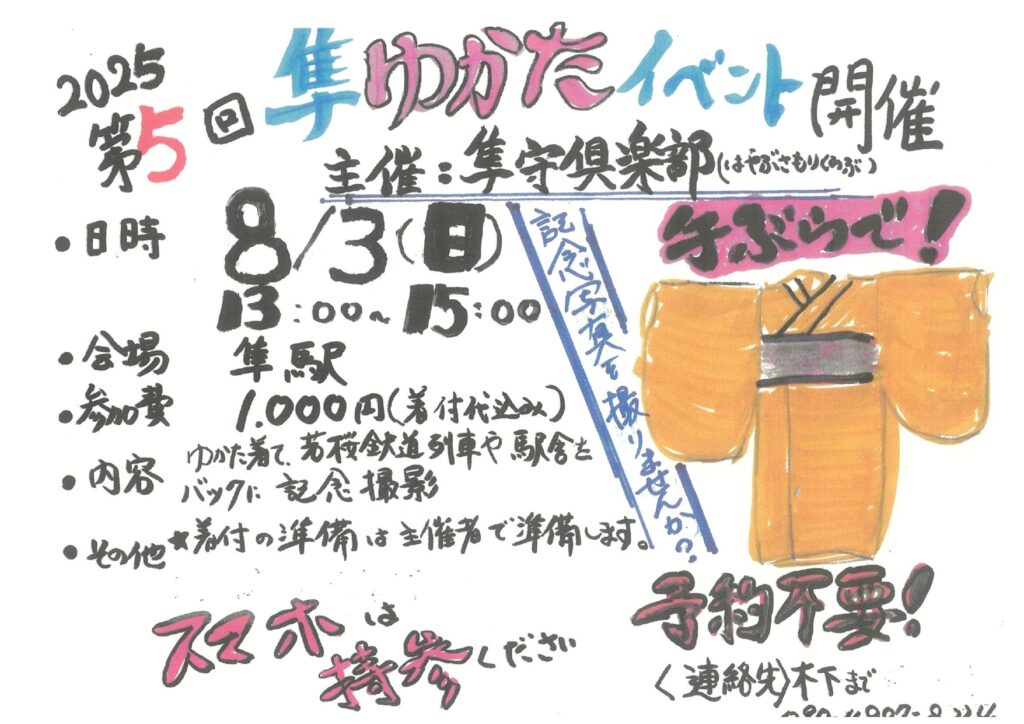 2025
第5回 隼ゆかたイベント開催
主催:隼守倶楽部(はやぶさもりくらぶ)
・日時 8/3(日)
13:00~15:00
・会場 隼駅
・参加費 1.000円(着付代込み)
・内容 ゆかた着て、若桜鉄道列車や駅舎を
バックに記念撮影
・その他 *着付の準備は主催者で準備します。
記念写真を撮りませんか?
手ぶらで!
スマホは
持参ください
予約不要!
〈連絡先〉木下まで